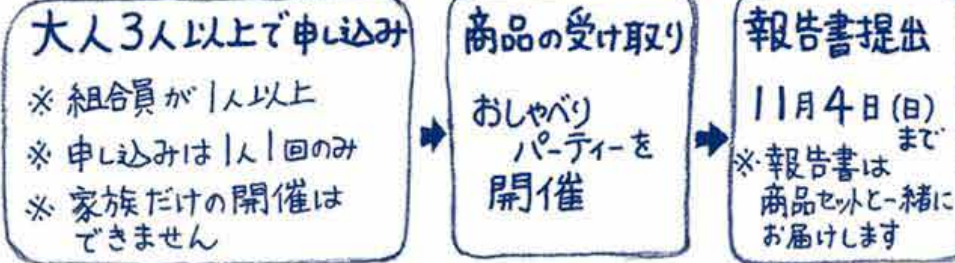 大人3人以上で申し込み
※ 組合員が1人以上
※ 申し込みは1人1回のみ
※ 家族だけの開催は
できません
商品の受け取り
おしゃべり
パーティーを
開催
報告書提出
11月4日(日)
まで
※報告書は
商品セットと一緒に
お届けします